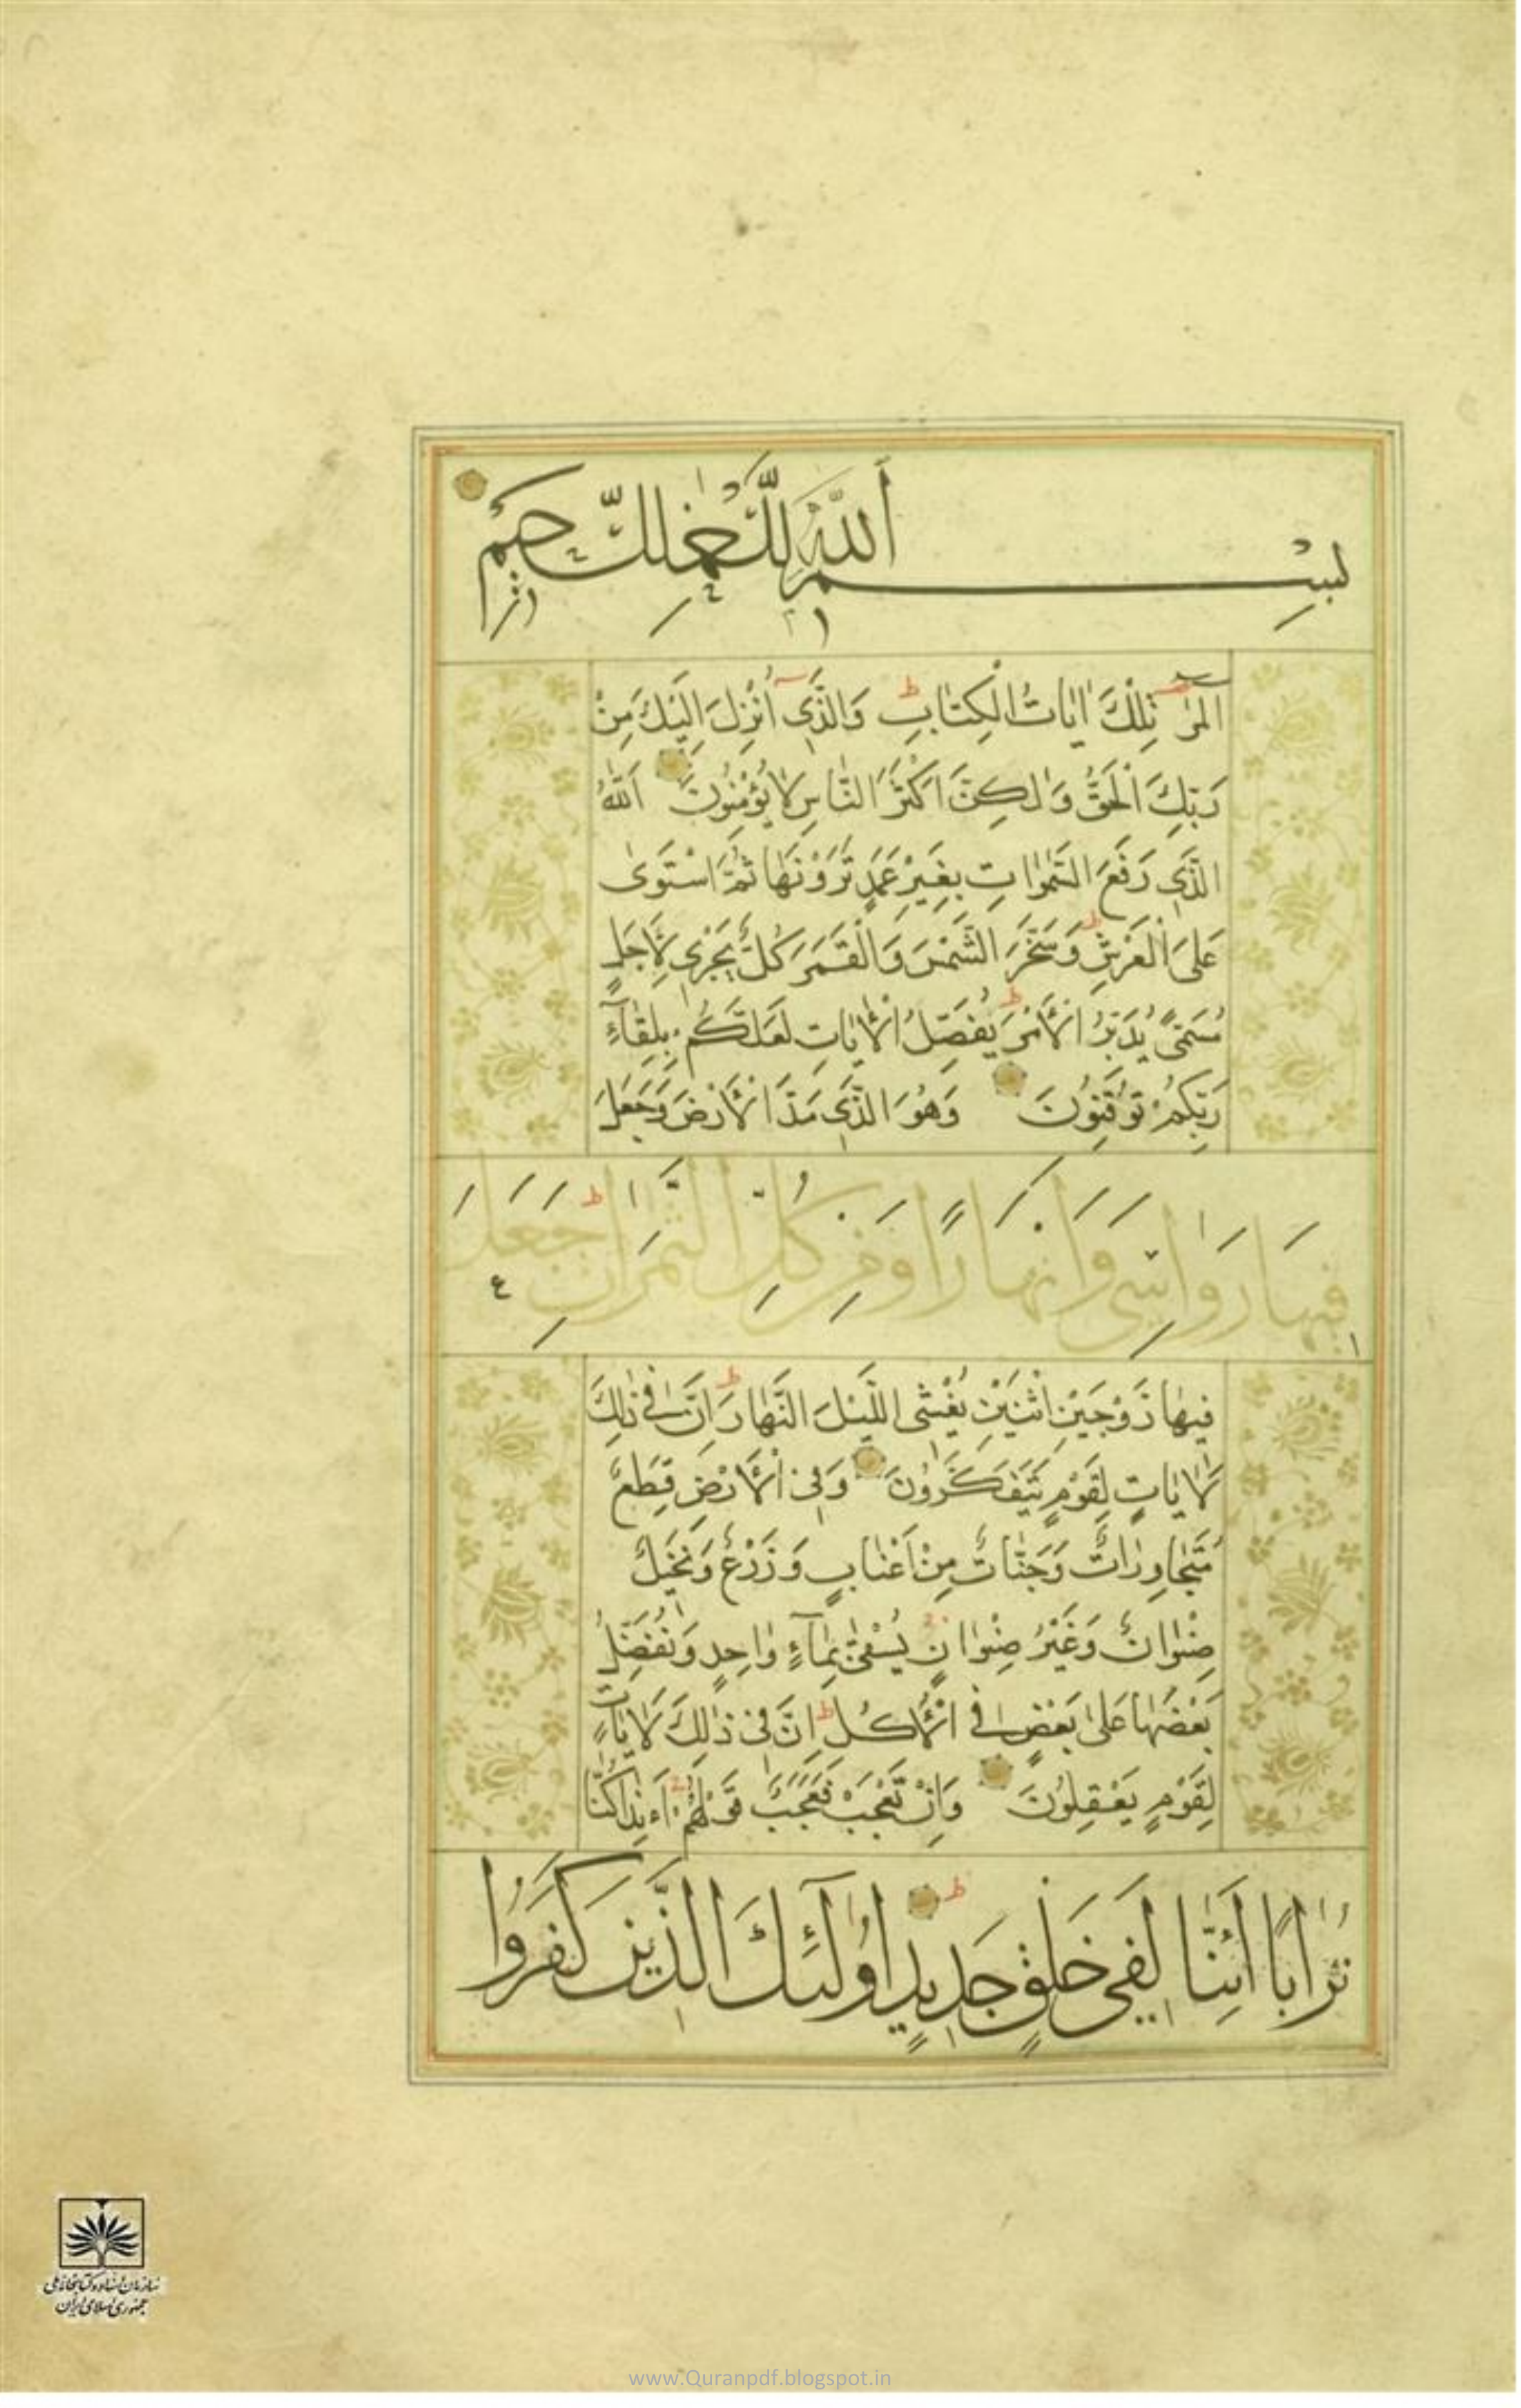 بِسْمِ اللّٰهِ الرَّحْمٰنِ الرَّحِيمِ
الٓمٓرٰ تِلْكَ اٰيٰاتُ الْكِتٰابِ ط وَالَّذٖٓي اُنْزِلَ اِلَيْكَ مِنْ
رَبِّكَ الْحَقُّ وَلٰكِنَّ اَكْثَرَ النّٰاسِ لٰا يُؤْمِنُونَ اَللّٰهُ
الَّذٖي رَفَعَ السَّمٰوٰاتِ بِغَيْرِ عَمَدٍ تَرَوْنَهٰا ثُمَّ اسْتَوٰى
عَلَى الْعَرْشِ ط وَسَخَّرَ الشَّمْسَ وَالْقَمَرَ كُلٌّ يَجْرٖي لِاَجَلٍ
مُسَمًّى يُدَبِّرُ الْاَمْرَ ط يُفَصِّلُ الْاٰيٰاتِ لَعَلَّكُمْ بِلِقٰآءِ
رَبِّكُمْ تُوقِنُونَ وَهُوَ الَّذٖي مَدَّ الْاَرْضَ وَجَعَلَ
فٖيهٰا رَوٰاسِيَ وَاَنْهٰارًا وَمِنْ كُلِّ الثَّمَرٰاتِ ط جَعَلَ
فٖيهٰا زَوْجَيْنِ اثْنَيْنِ يُغْشِي اللَّيْلَ النَّهٰارَ ط اِنَّ فٖي ذٰلِكَ
لَاٰيٰاتٍ لِقَوْمٍ يَتَفَكَّرُونَ وَفِي الْاَرْضِ قِطَعٌ
مُتَجٰاوِرٰاتٌ وَجَنّٰاتٌ مِنْ اَعْنٰابٍ وَزَرْعٌ وَنَخٖيلٌ
صِنْوٰانٌ وَغَيْرُ صِنْوٰانٍ يُسْقٰى بِمٰآءٍ وٰاحِدٍ وَنُفَضِّلُ
بَعْضَهٰا عَلٰى بَعْضٍ فِي الْاُكُلِ ط اِنَّ فٖي ذٰلِكَ لَاٰيٰاتٍ
لِقَوْمٍ يَعْقِلُونَ وَاِنْ تَعْجَبْ فَعَجَبٌ قَوْلُهُمْ ءَاِذٰا كُنّٰا
تُرٰابًا اَئِنّٰا لَفٖي خَلْقٍ جَدٖيدٍ ط اُولٰٓئِكَ الَّذٖينَ كَفَرُوا
سازمان اسناد و کتابخانه ملی
جمهوری اسلامی ایران
www.Quranpdf.blogspot.in